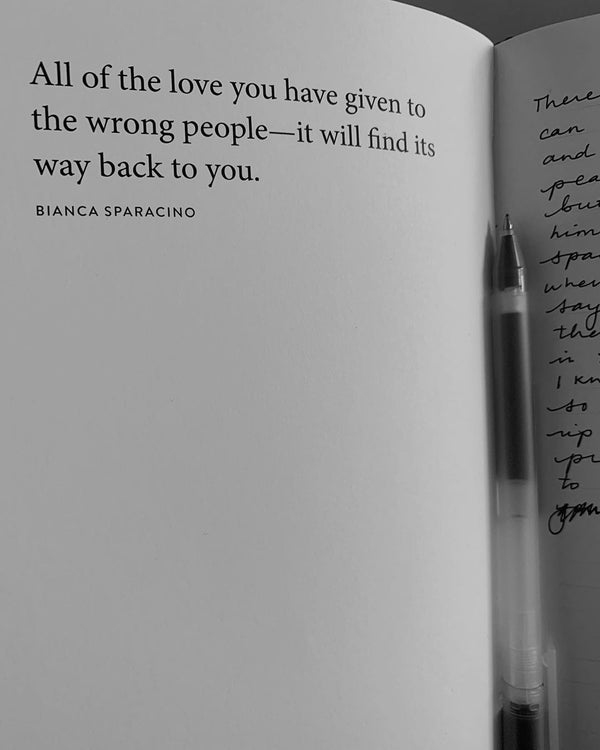 All of the love you have given to
the wrong people—it will find its
way back to you.
BIANCA SPARACINO
There
can
and
but
him
when
say
in
I kn
so
rip
to